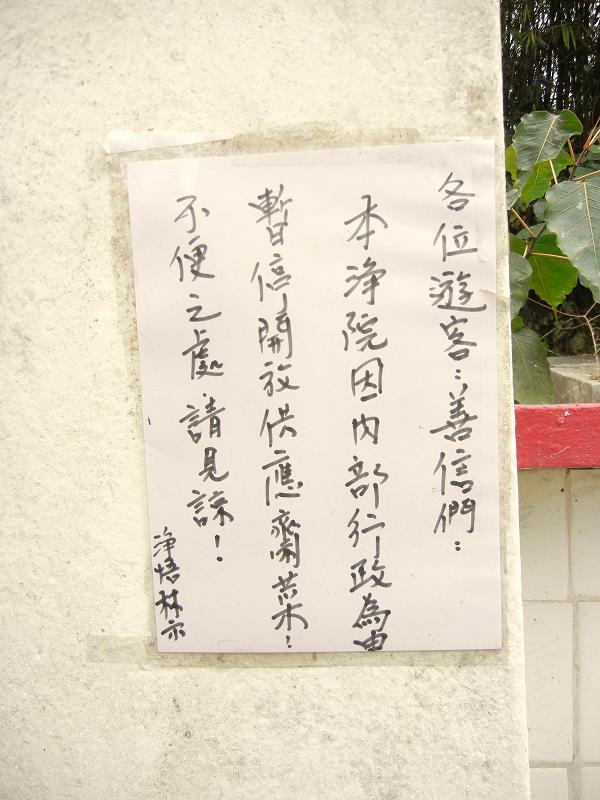 各位遊客:善信們:
本淨院因內部行政為由
暫停開放供應齋菜!
不便之處請見諒!
淨悟林示